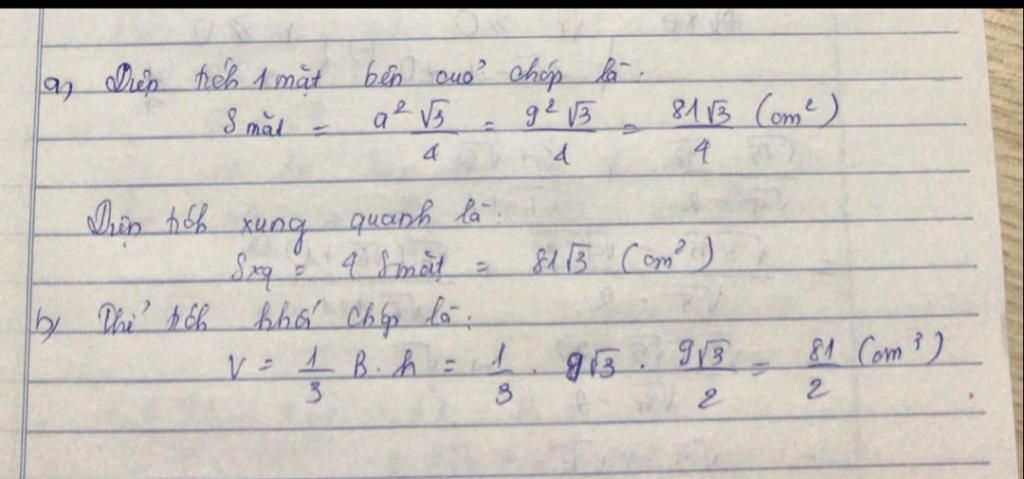 a) Diện tích 1 mặt bên của chóp là:
S mặt = a²√3/4 = 9²√3/4 = 81√3/4 (cm²)
Diện tích xung quanh là:
Sxq = 4 Smặt = 81√3 (cm²)
b) Thể tích khối chóp là:
V = 1/3 B.h = 1/3 . 9√3 . 9√3/2 = 81/2 (cm³)